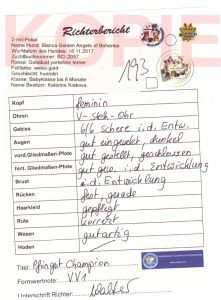 KOPIE
Richterbericht
2-mit-Pokal
Name Hund: Bianca Golden Angels of Bohemia
Wurfdatum des Hundes: 16.11.2017
Zuchtbuchnummer: BCI-2057
Rasse: Golddust yorkshire terrier
Fellfarbe: weiss-gold
Geschlecht: huendin
Klasse: Babyklasse bis 6 Monate
Name Besitzer: Katerina Kotkova
193
Kopf feminin
Ohren V-Steh-Ohr
Gebiss 6/6 Schere i.d. Entw.
Augen gut eingesetzt, dunkel
vord.Gließmaßen-Pfote gut gestellt, geschlossen
hint. Gließmaßen-Pfote gut, i.d. Entwicklung
Brust i.d. Entwicklung
Rücken fest, gerade
Haarkleid gepflegt
Rute korrekt
Wesen gutartig
Hoden
Titel: Pfingst Champion
Formwertnote: VV1
Unterschrift Richter: